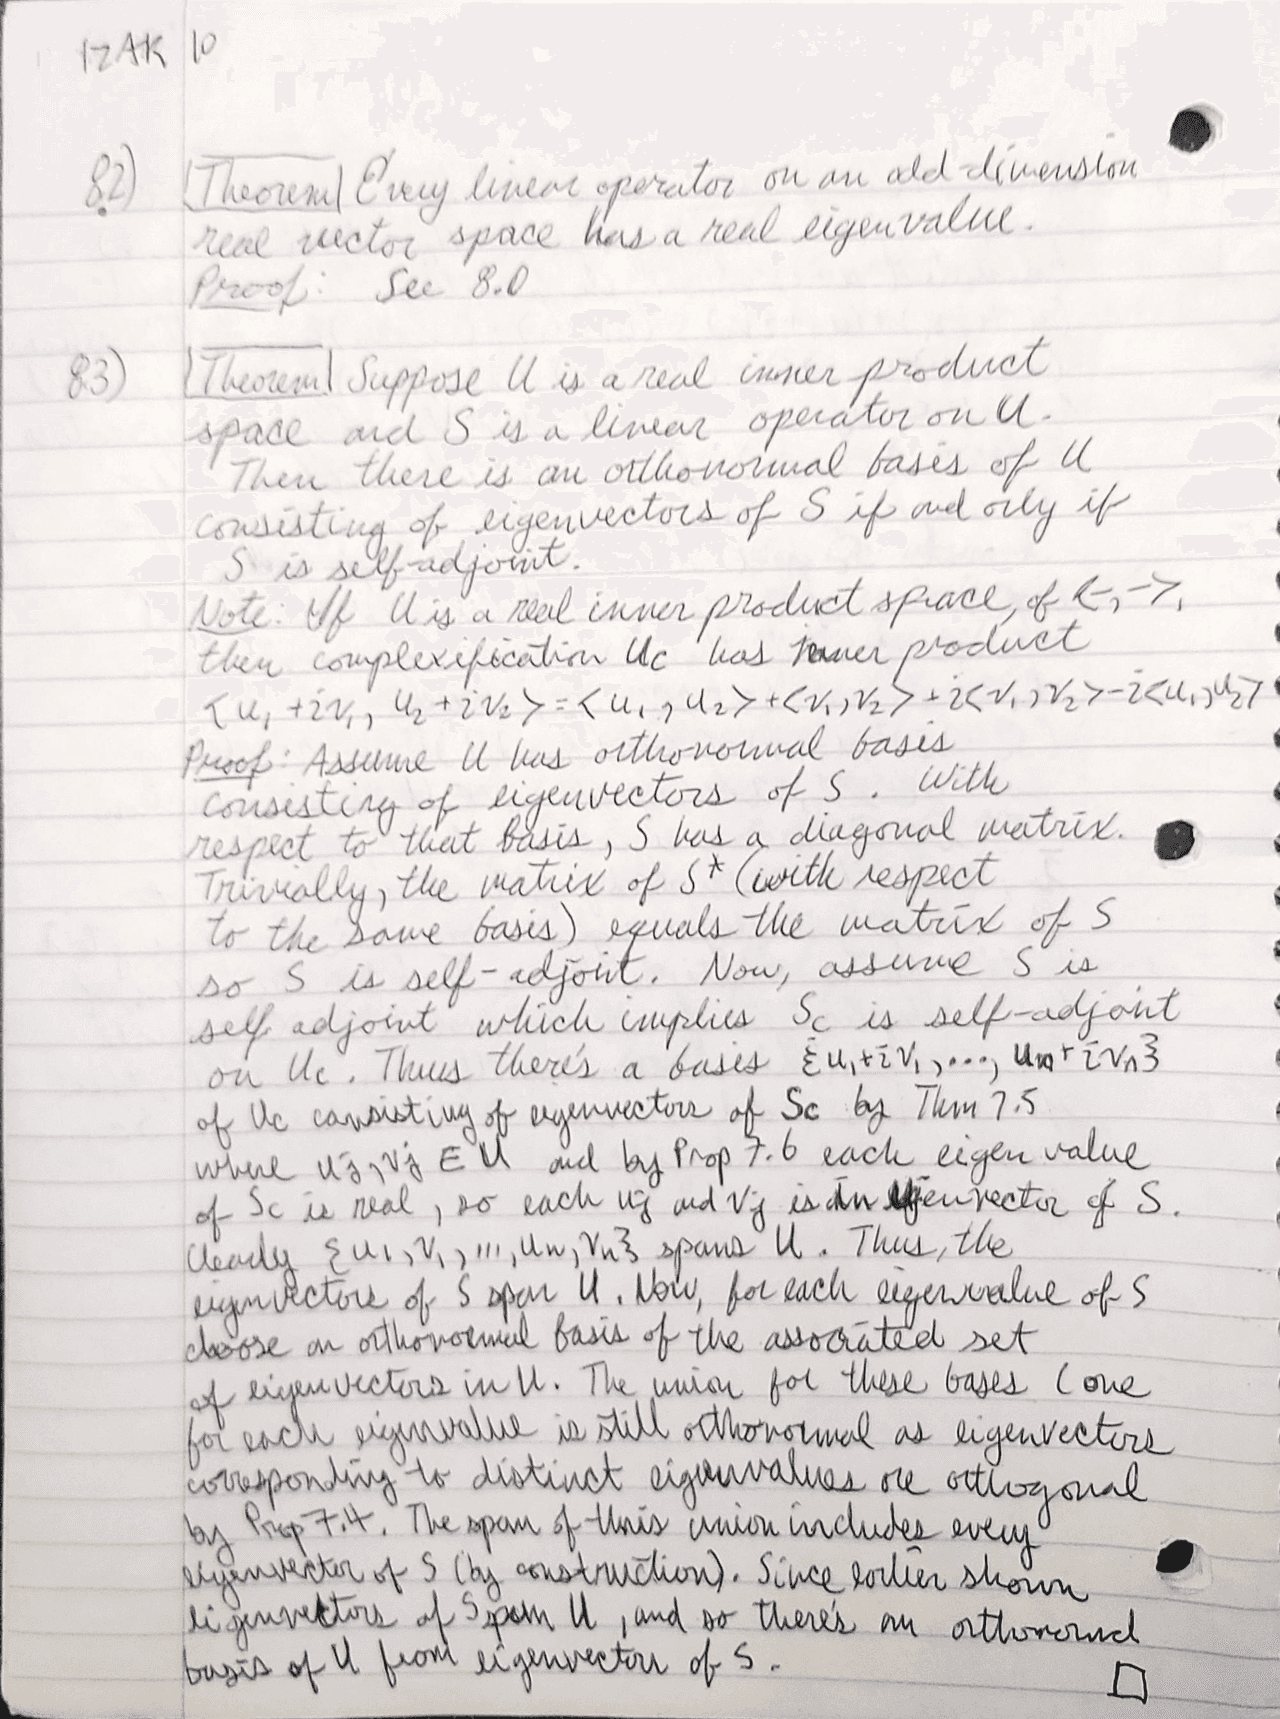 IZAK 10
8.2) Theorem Every linear operator on an odd-dimension
real vector space has a real eigenvalue.
Proof: See 8.0
8.3) Theorem Suppose U is a real inner product
space and S is a linear operator on U.
Then there is an orthonormal basis of U
consisting of eigenvectors of S if and only if
S is self-adjoint.
Note: If U is a real inner product space, of <-,->,
then complexification Uc has inner product
<u₁+iv₁, u₂+iv₂>=<u₁,u₂>+<v₁,v₂>+i<v₁,v₂>-i<u₁,u₂>
Proof: Assume U has orthonormal basis
consisting of eigenvectors of S. With
respect to that basis, S has a diagonal matrix.
Trivially, the matrix of S* (with respect
to the same basis) equals the matrix of S
so S is self-adjoint. Now, assume S is
self adjoint which implies Sc is self-adjoint
on Uc. Thus there's a basis {u₁+iv₁,..., uₙ+ivₙ}
of Uc consisting of eigenvectors of Sc by Thm 7.5
where uj,vj ∈ U and by Prop 7.6 each eigen value
of Sc is real, so each uj and vj is in eigenvector of S.
Clearly {u₁,v₁,...,uₙ,vₙ} spans U. Thus, the
eigenvectors of S span U. Now, for each eigenvalue of S
choose an orthonormal basis of the associated set
of eigenvectors in U. The union for these bases (one
for each eigenvalue is still orthonormal as eigenvectors
corresponding to distinct eigenvalues are orthogonal
by Prop 7.4. The span of this union includes every
eigenvector of S (by construction). Since earlier shown
eigenvectors of S span U, and so there's an orthonormal
basis of U from eigenvectors of S.
□